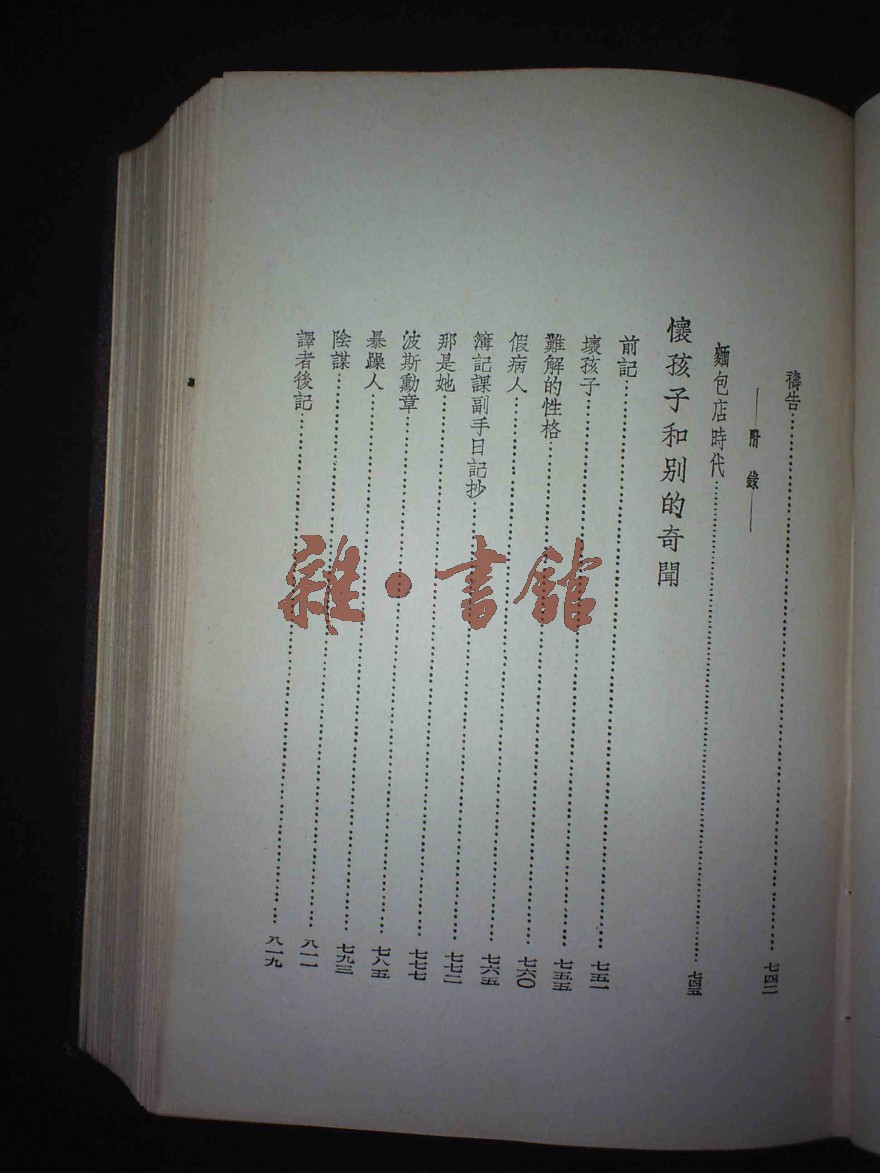 禱告……七四二
——附錄——
麵包店時代……七四五
懷孩子和別的奇聞
前記……七五一
壞孩子……七五五
難解的性格……七六〇
假病人……七六五
簿記課副手日記抄……七七二
那是她……七七七
波斯勳章……七八五
暴躁人……七九三
陰謀……八一一
譯者後記……八一九
雜·書館